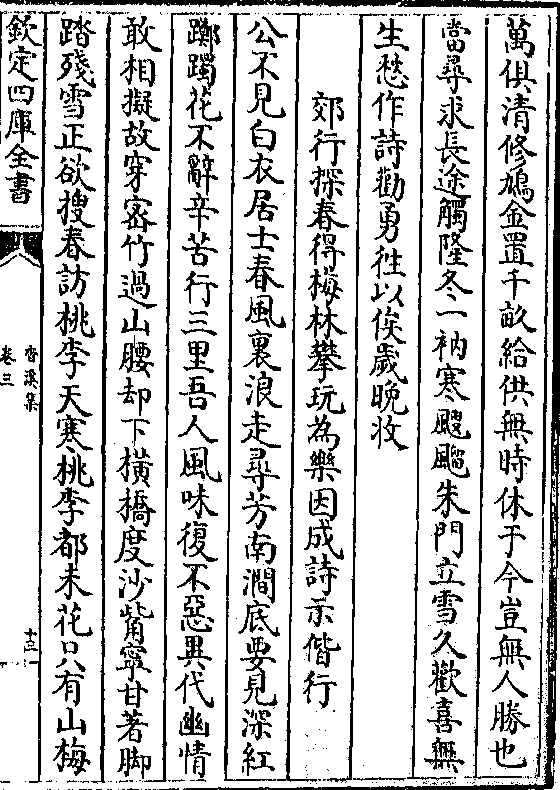 萬俱清修鳩金置千畝給供無時休于今豈無人勝也
當尋求長途觸隆冬一衲寒颼飀朱門立雪久歡喜無
生愁作詩勸勇徃以俟歲晚收
郊行探春得梅林攀玩為樂因成詩示偕行
公不見白衣居士春風裏浪走尋芳南澗底要見深紅
躑躅花不辭辛苦行三里吾人風味復不惡異代幽情
敢相擬故穿宻竹過山腰却下橫橋度沙觜寧甘著脚
踏殘雪正欲搜春訪桃李天寒桃李都未花只有山梅
欽定四庫全書
香溪集
卷三
十三